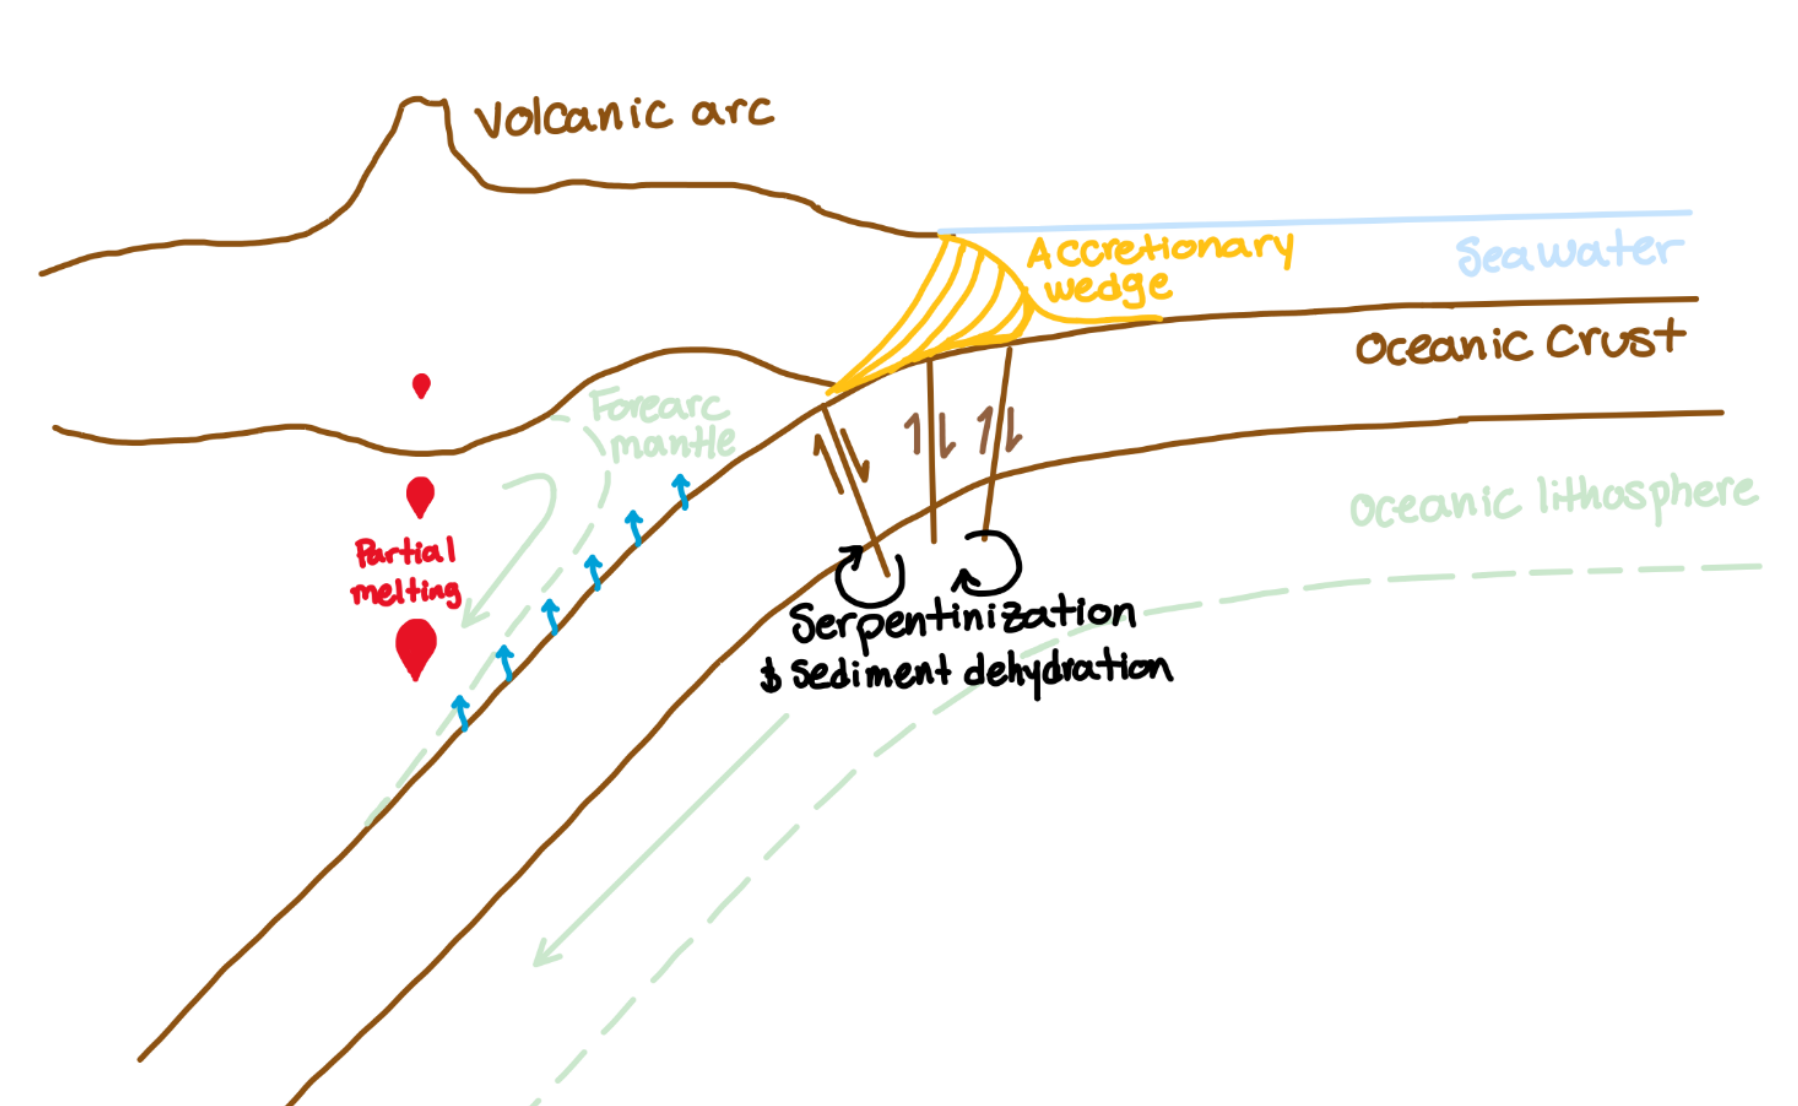 Volcanic arc
Accretionary
wedge
Seawater
Oceanic Crust
Forearc
mantle
Oceanic lithosphere
Partial
melting
Serpentinization
& Sediment dehydration